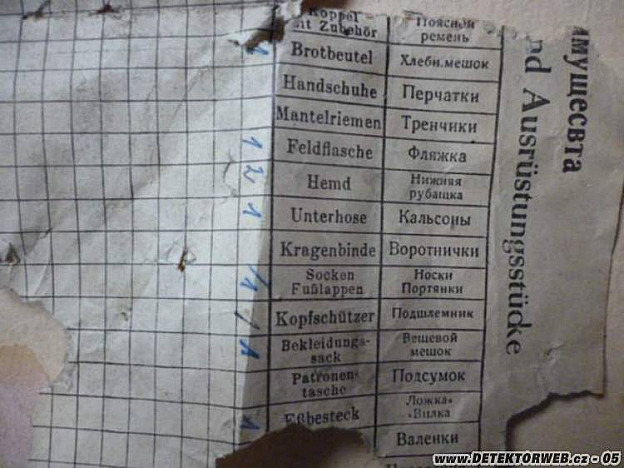 Koppel
mit Zubehör
Поясной
ремень
1
Brotbeutel
Хлебн. мешок
Handschuhe
Перчатки
Mantelriemen
Тренчики
1
Feldflasche
Фляжка
2
Hemd
Нижняя
рубашка
1
Unterhose
Кальсоны
Kragenbinde
Воротнички
1
Socken
Fußlappen
Носки
Портянки
1
Kopfschützer
Подшлемник
1
Bekleidungs-
sack
Вещевой
мешок
Patronen-
tasche
Подсумок
1
Eßbesteck
Ложка-
-Вилка
Валенки
имущесвта
nd Ausrüstungsstücke
WWW.DETEKTORWEB.cz - 05